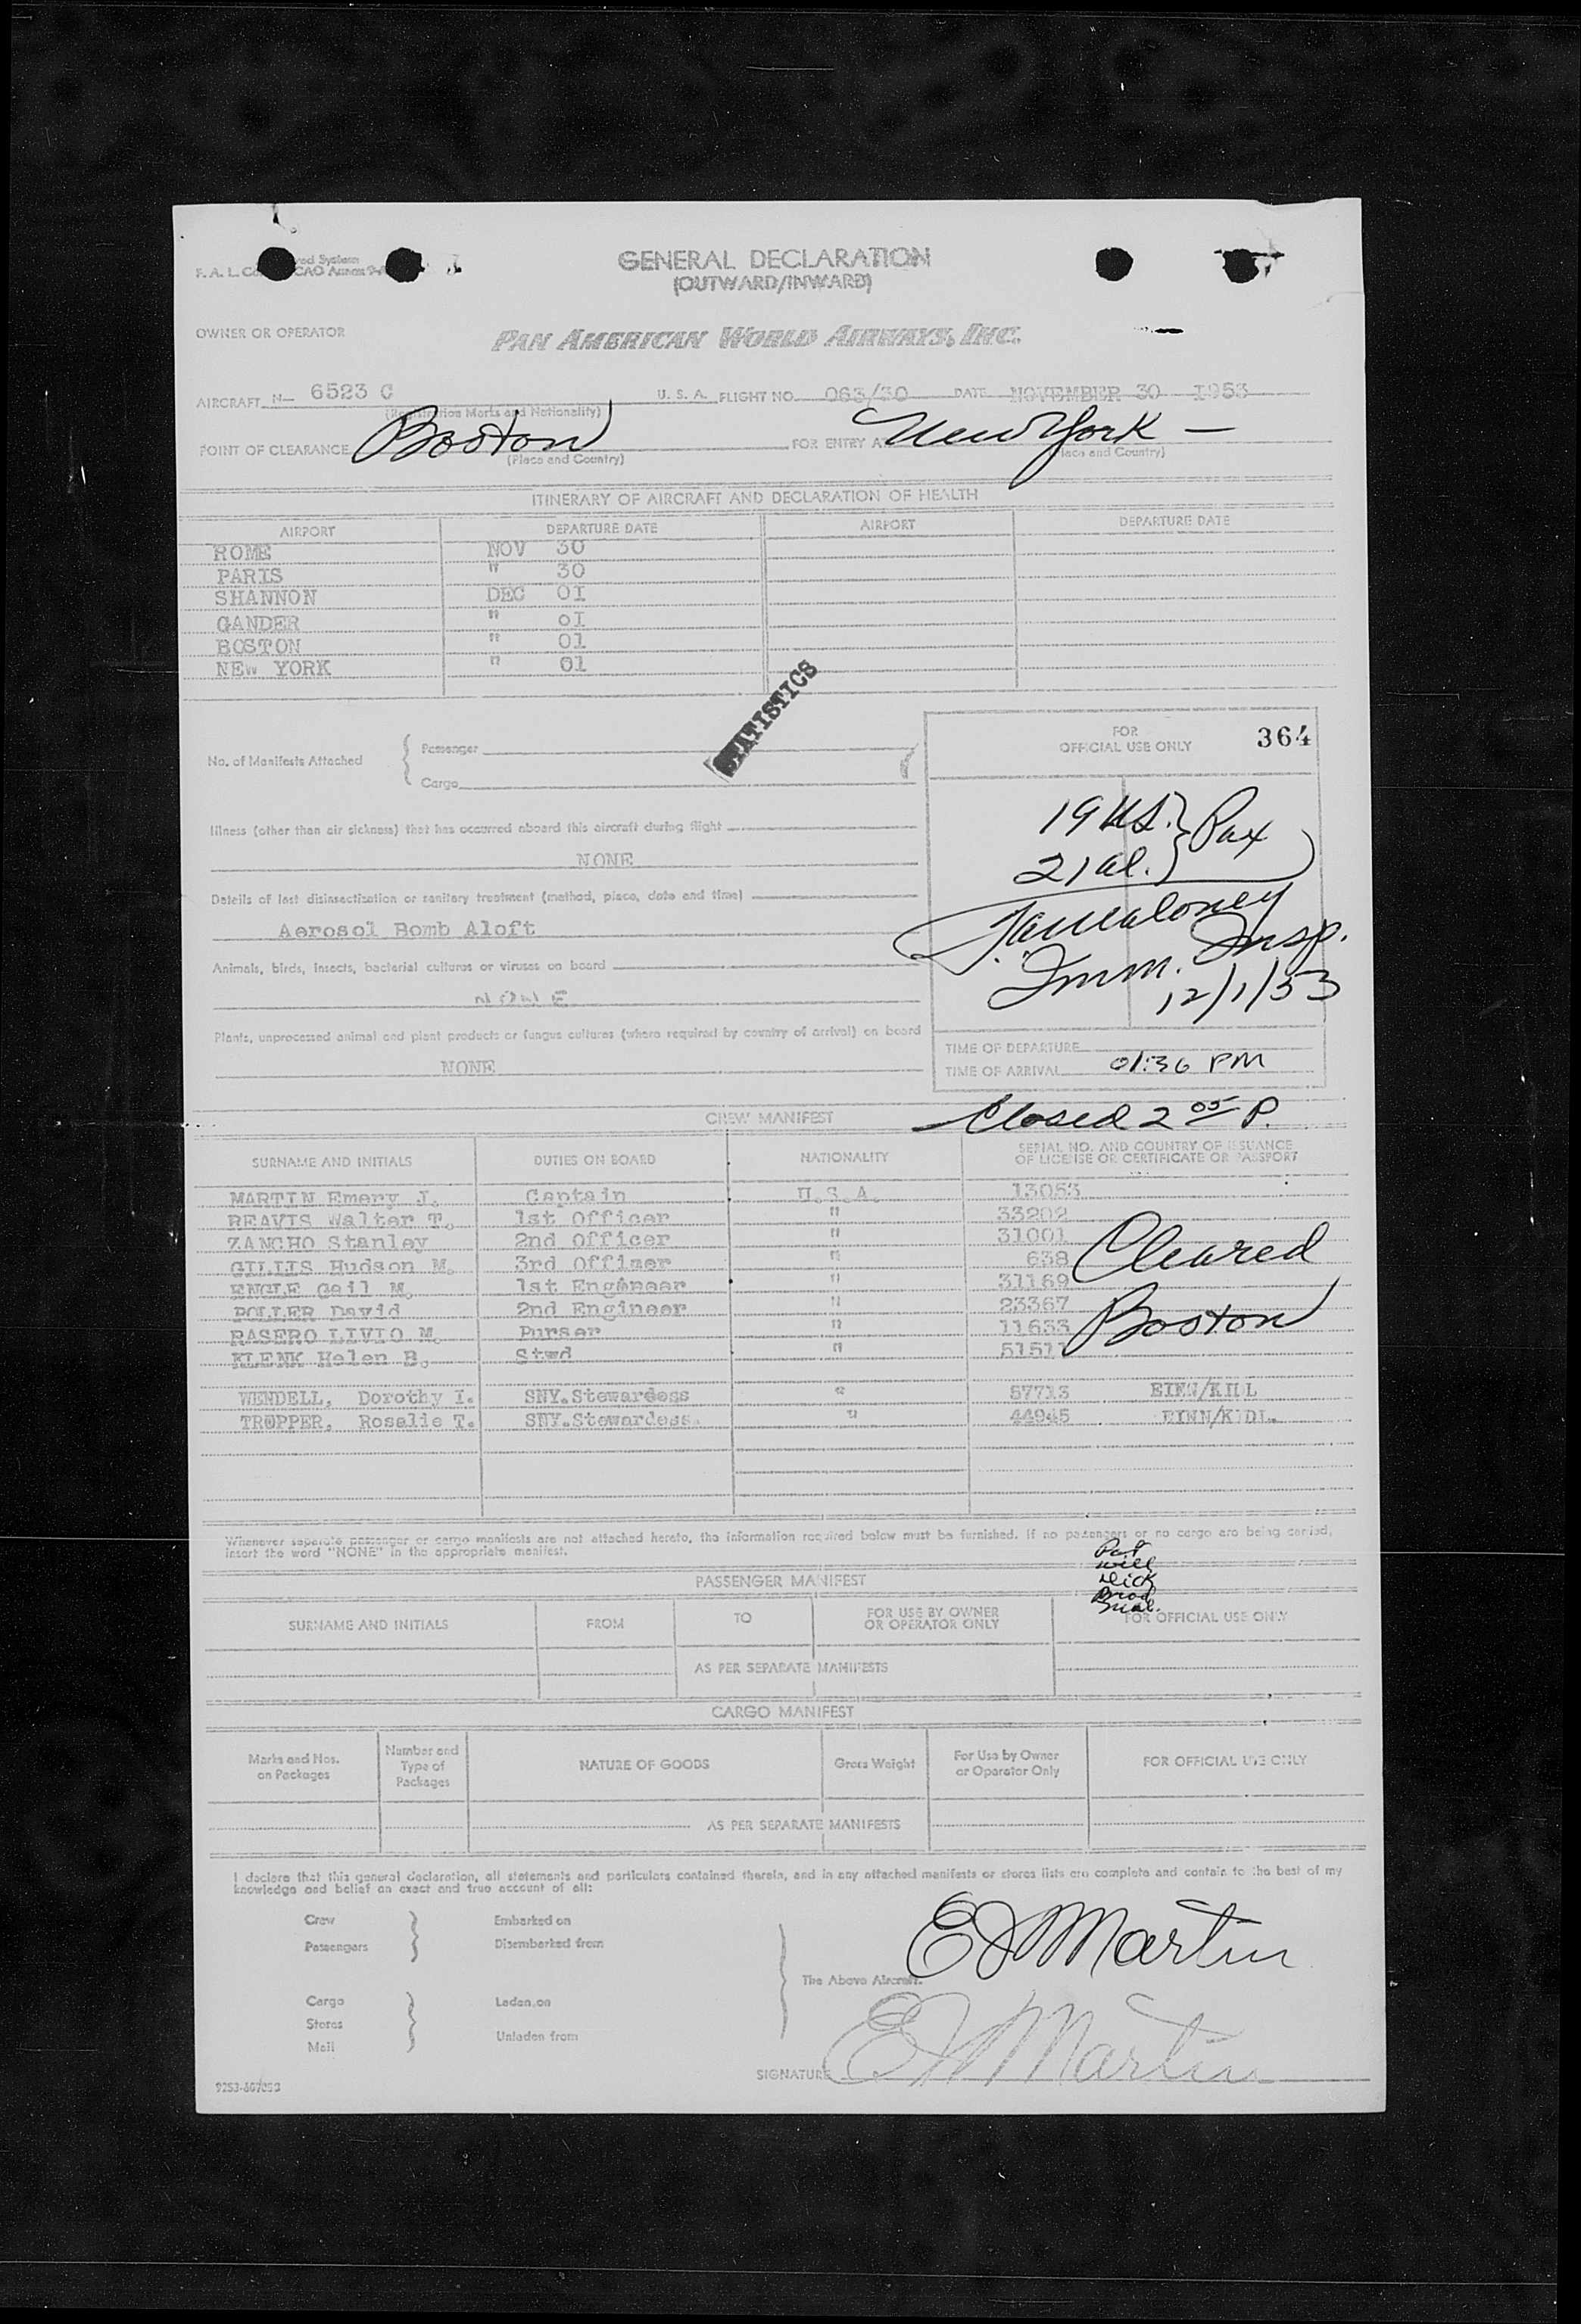 GENERAL DECLARATION
(OUTWARD/INWARD)
OWNER OR OPERATOR PAN AMERICAN WORLD AIRWAYS, INC.
AIRCRAFT N— 6523 C U. S. A. FLIGHT NO. 063/30 DATE NOVEMBER 30 1953
(Registration Marks and Nationality)
POINT OF CLEARANCE Boston FOR ENTRY AT New York —
(Place and Country) (Place and Country)
ITINERARY OF AIRCRAFT AND DECLARATION OF HEALTH
AIRPORT DEPARTURE DATE AIRPORT DEPARTURE DATE
ROME NOV 30
PARIS " 30
SHANNON DEC 01
GANDER " 01
BOSTON " 01
NEW YORK " 01
STATISTICS
FOR OFFICIAL USE ONLY 364
No. of Manifests Attached { Passenger
Cargo
19 U.S. } Pax
21 al. }
Illness (other than air sickness) that has occurred aboard this aircraft during flight
NONE
Details of last disinsectization or sanitary treatment (method, place, date and time)
Aerosol Bomb Aloft
Imm. Insp.
12/1/53
Animals, birds, insects, bacterial cultures or viruses on board
NONE
Plants, unprocessed animal and plant products or fungus cultures (where required by country of arrival) on board
NONE
TIME OF DEPARTURE
TIME OF ARRIVAL 01:36 PM
Closed 2 05 P.
CREW MANIFEST
SURNAME AND INITIALS DUTIES ON BOARD NATIONALITY SERIAL NO. AND COUNTRY OF ISSUANCE OF LICENSE OR CERTIFICATE OR PASSPORT
MARTIN Emery J. Captain U.S.A. 13053
REAVIS Walter T. 1st Officer " 33202
ZANCHO Stanley 2nd Officer " 31001
GILLIS Hudson M. 3rd Officer " 638
ENGLE Gail M. 1st Engineer " 31169
POLLER David 2nd Engineer " 23367
RASERO LIVIO M. Purser " 11633
KLENK Helen B. Stwd " 51511
Cleared
Boston
WENDELL, Dorothy I. SNY.Stewardess " 57713 EINN/KIDL
TROPPER, Rosalie T. SNY.Stewardess " 44945 EINN/KIDL
Whenever separate passenger or cargo manifests are not attached hereto, the information required below must be furnished. If no passengers or no cargo are being carried,
insert the word "NONE" in the appropriate manifest.
Pat
Will
Dick
Brad
PASSENGER MANIFEST
SURNAME AND INITIALS FROM TO FOR USE BY OWNER OR OPERATOR ONLY FOR OFFICIAL USE ONLY
AS PER SEPARATE MANIFESTS
CARGO MANIFEST
Marks and Nos. on Packages Number and Type of Packages NATURE OF GOODS Gross Weight For Use by Owner or Operator Only FOR OFFICIAL USE ONLY
AS PER SEPARATE MANIFESTS
I declare that this general declaration, all statements and particulars contained therein, and in any attached manifests or stores lists are complete and contain to the best of my
knowledge and belief an exact and true account of all:
Crew } Embarked on
Passengers } Disembarked from
The Above Aircraft. E J Martin
Cargo } Laden on
Stores
Mail } Unladen from
SIGNATURE E J Martin